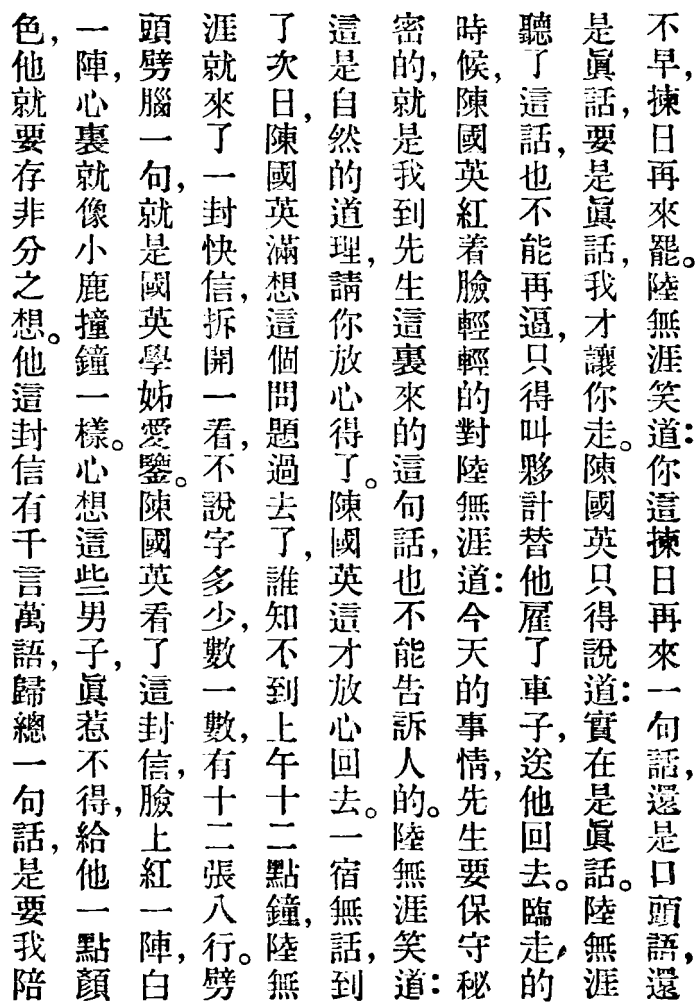 不早，揀日再來罷。陸無涯笑道：你這揀日再來一句話，還是口頭語，還
是眞話，要是眞話，我才讓你走。陳國英只得說道：實在是眞話。陸無涯
聽了這話，也不能再逼，只得叫夥計替他雇了車子，送他回去。臨走，的
時候，陳國英紅着臉輕輕的對陸無涯道：今天的事情，先生要保守秘
密的，就是我到先生這裏來的這句話，也不能告訴人的。陸無涯笑道：
這是自然的道理，請你放心得了。陳國英這才放心回去。一宿無話，到
了次日，陳國英滿想這個問題過去了，誰知不到上午十二點鐘，陸無
涯就來了一封快信，拆開一看，不說字多少，數一數，有十二張八行。劈
頭劈腦一句，就是國英學姊愛鑒。陳國英看了這封信，臉上紅一陣，白
一陣，心裏就像小鹿撞鐘一樣。心想這些男子，眞惹不得，給他一點顏
色，他就要存非分之想。他這封信有千言萬語，歸總一句話，是要我陪